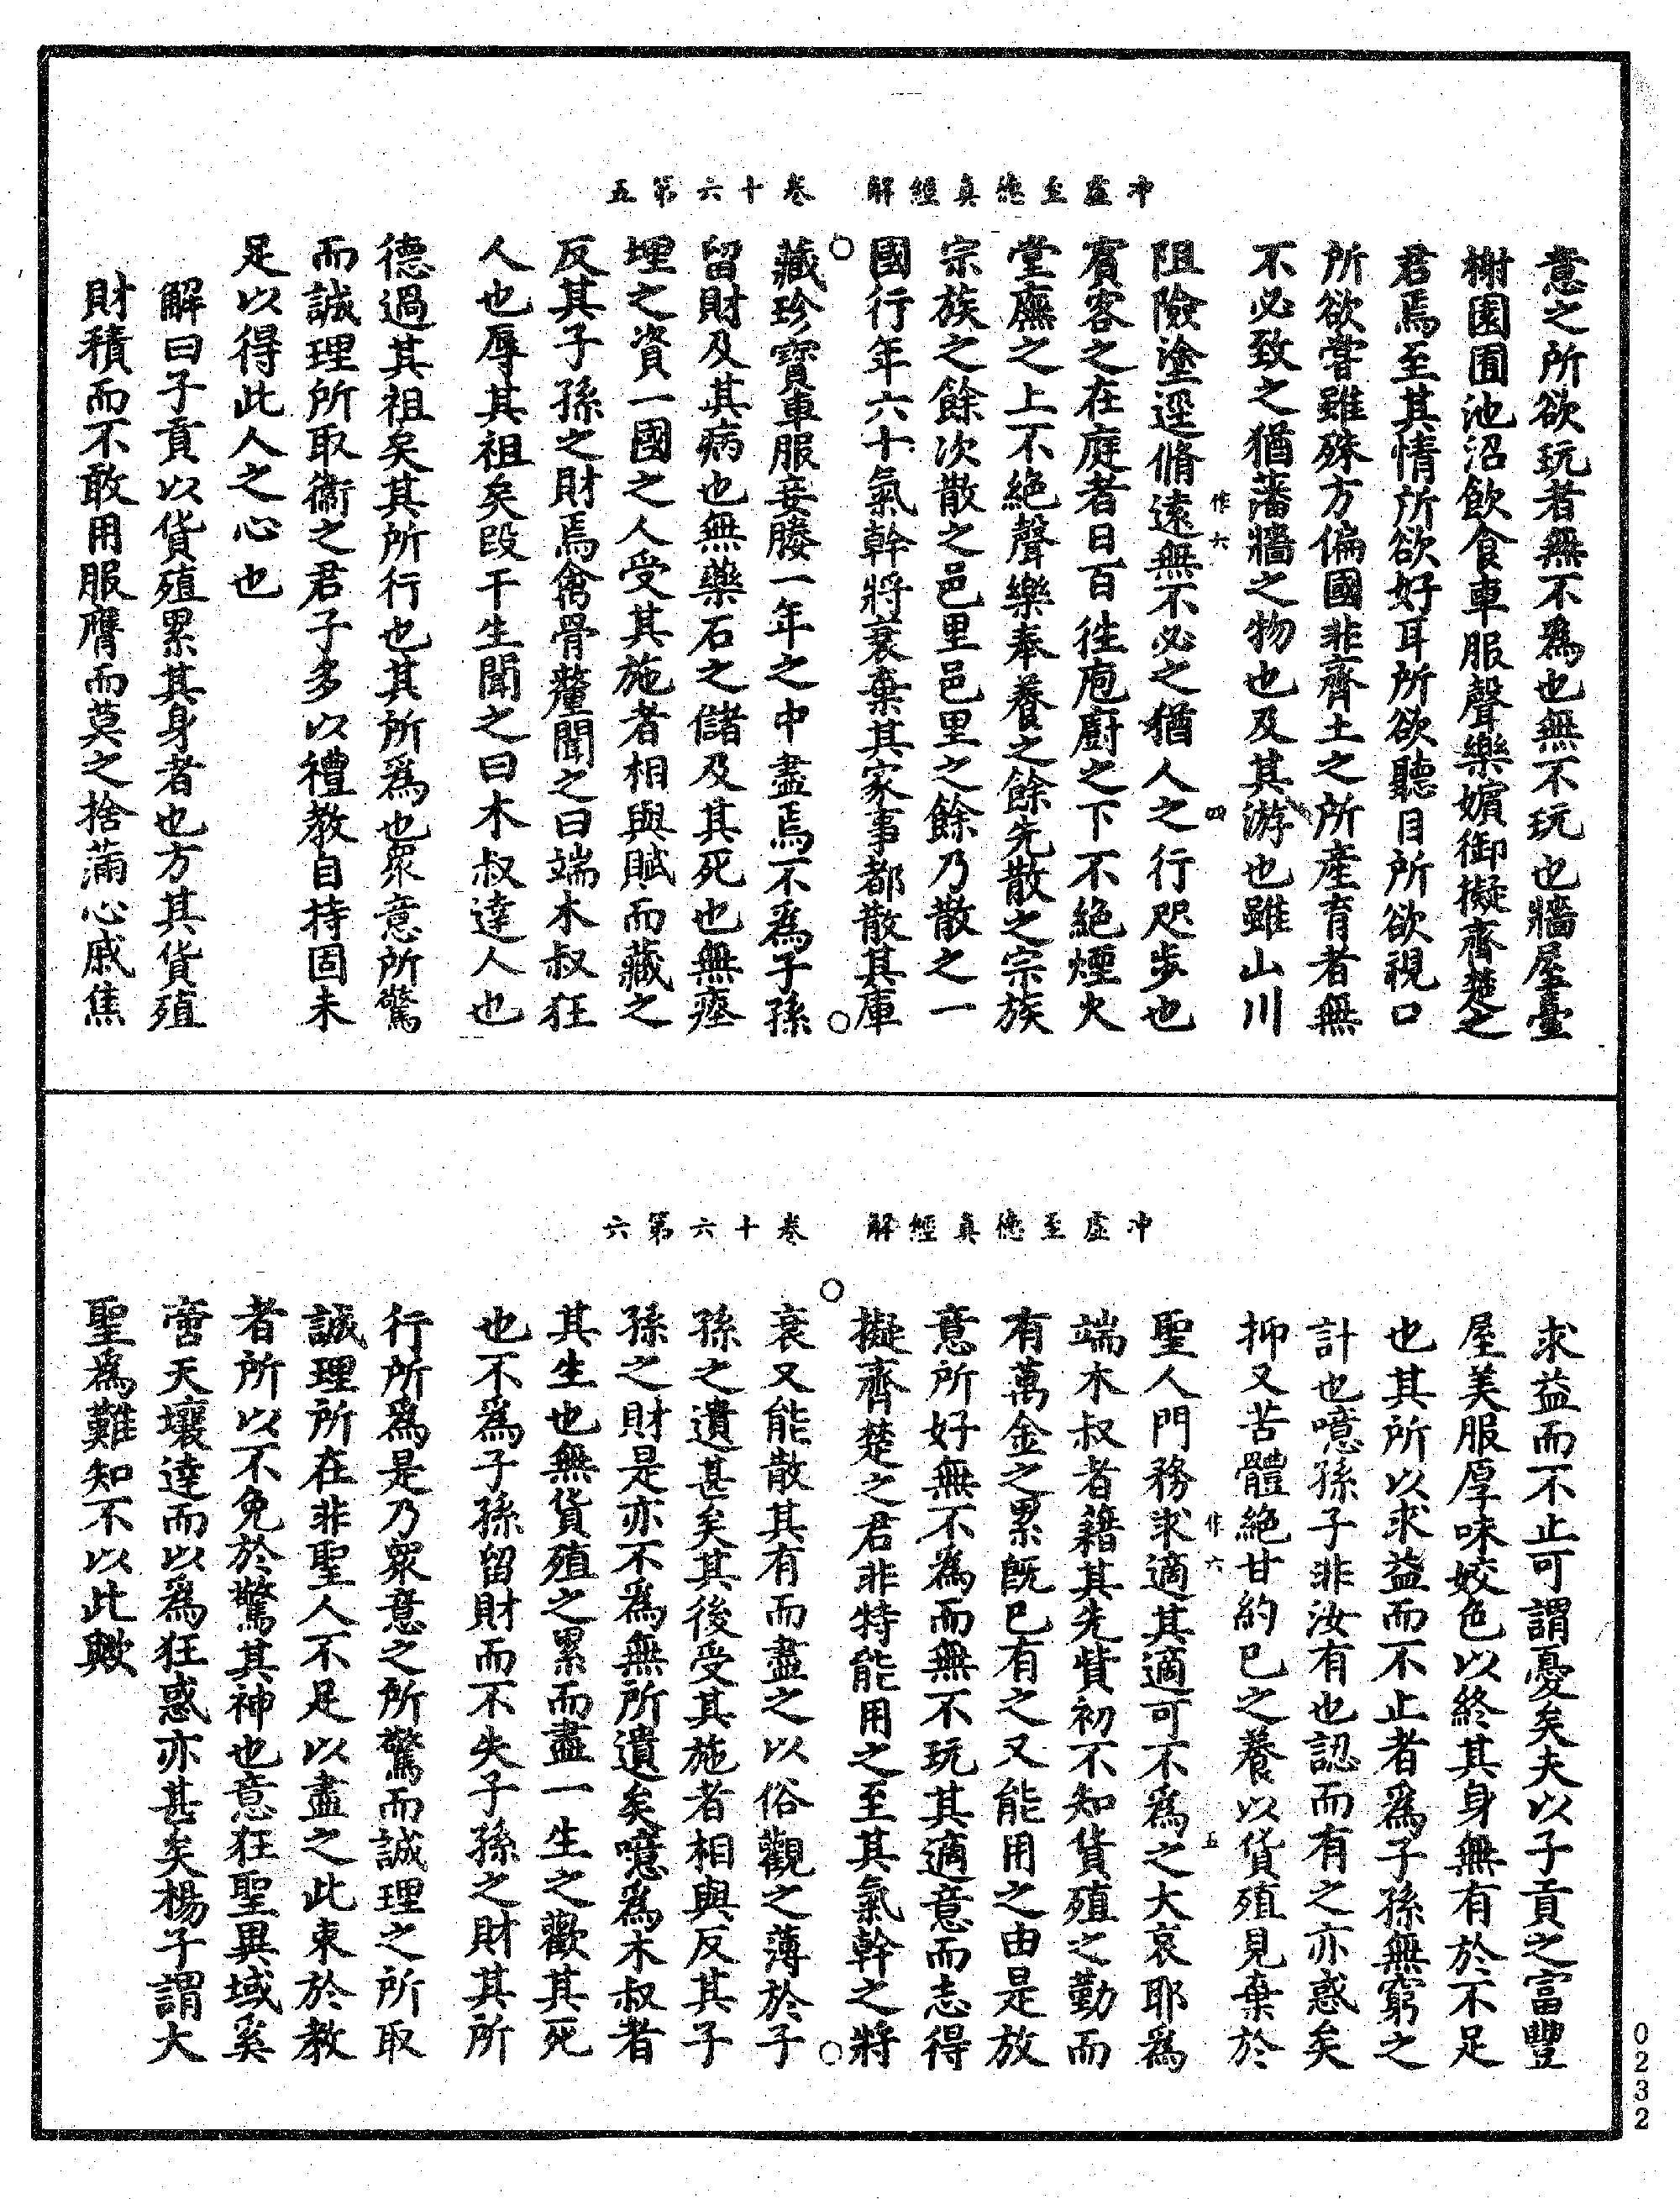 冲虛至德真經解　卷十六第五
意之所欲玩者無不為也無不玩也牆屋臺
榭園囿池沼飲食車服聲樂嬪御擬齊楚之
君焉至其情所欲好耳所欲聽目所欲視口
所欲嘗雖殊方偏國非齊土之所產育者無
不必致之猶藩牆之物也及其游也雖山川
作六　四
阻險塗逕脩遠無不必之猶人之行咫步也
賓客之在庭者日百往庖廚之下不絕煙火
堂廡之上不絕聲樂奉養之餘先散之宗族
宗族之餘次散之邑里邑里之餘乃散之一
國行年六十氣幹將衰棄其家事都散其庫
藏珍寶車服妾媵一年之中盡焉不為子孫
留財及其病也無藥石之儲及其死也無瘞
埋之資一國之人受其施者相與賦而藏之
反其子孫之財焉禽骨釐聞之曰端木叔狂
人也辱其祖矣段干生聞之曰木叔達人也
德過其祖矣其所行也其所為也眾意所驚
而誠理所取衞之君子多以禮教自持固未
足以得此人之心也
解曰子貢以貨殖累其身者也方其貨殖
財積而不敢用服膺而莫之捨滿心戚焦
冲虛至德真經解　卷十六第六
求益而不止可謂憂矣夫以子貢之富豐
屋美服厚味姣色以終其身無有於不足
也其所以求益而不止者為子孫無窮之
計也噫孫子非汝有也認而有之亦惑矣
抑又苦體絕甘約己之養以貨殖見棄於
作六　五
聖人門務求適其適可不為之大哀耶為
端木叔者籍其先貲初不知貨殖之勤而
有萬金之累既已有之又能用之由是放
意所好無不為而無不玩其適意而志得
擬齊楚之君非特能用之至其氣幹之將
衰又能散其有而盡之以俗觀之薄於子
孫之遺甚矣其後受其施者相與反其子
孫之財是亦不為無所遺矣噫為木叔者
其生也無貨殖之累而盡一生之歡其死
也不為子孫留財而不失子孫之財其所
行所為是乃眾意之所驚而誠理之所取
誠理所在非聖人不足以盡之此束於教
者所以不免於驚其神也意狂聖異域奚
啻天壤達而以為狂惑亦甚矣楊子謂大
聖為難知不以此歟
0232